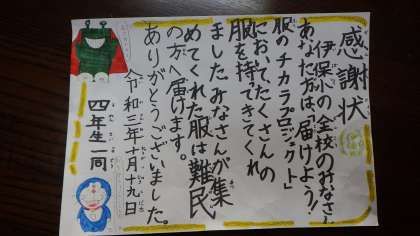 感謝状
伊保小の全校のみなさん
あなた方は「届けよう!
服のチカラプロジェクト」
において、たくさんの
服を持ってきてくれ
ましたみなさんが集
めてくれた服は難民
の方へ届けます。
ありがとうございました。
令和三年十月十九日
四年生一同